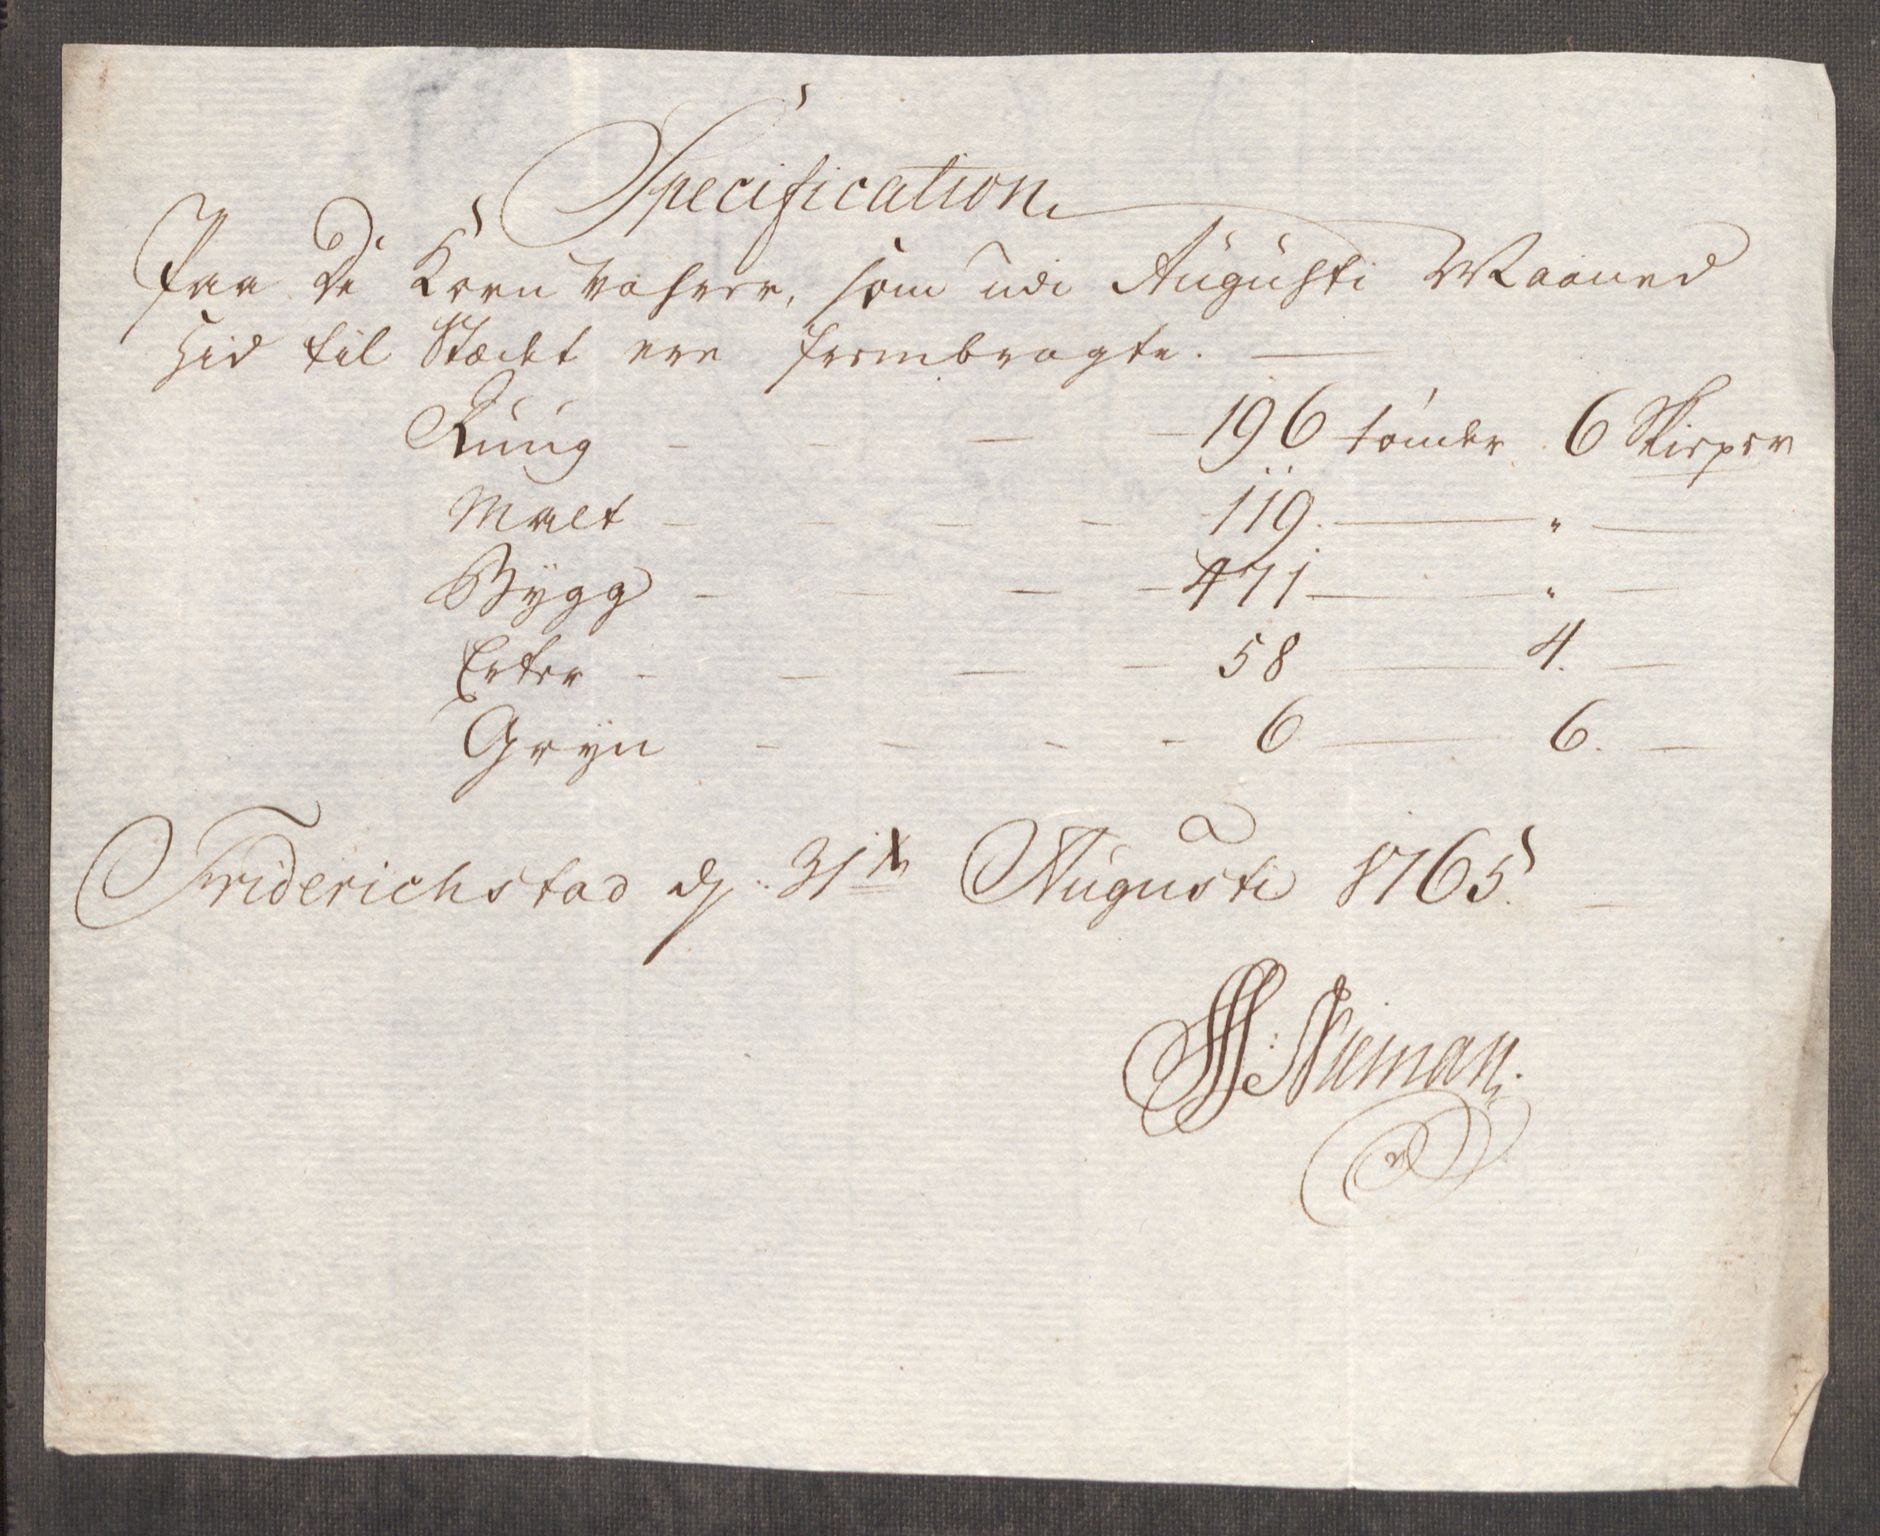 Specification
Paa De Korn Vahrer, som udi Augusti Maaned
hid til Stædet ere frembragte. —
Rúúg - - - - 196 tönder . 6 Skieper
Malt - - - - 119. — " —
Bÿgg - - - - 471 — " —
Erter - - - - 58 — 4. —
Grÿn - - - - 6 — 6. —
Friderichstad d. 31 Augusti 1765. —
H: Nieman.